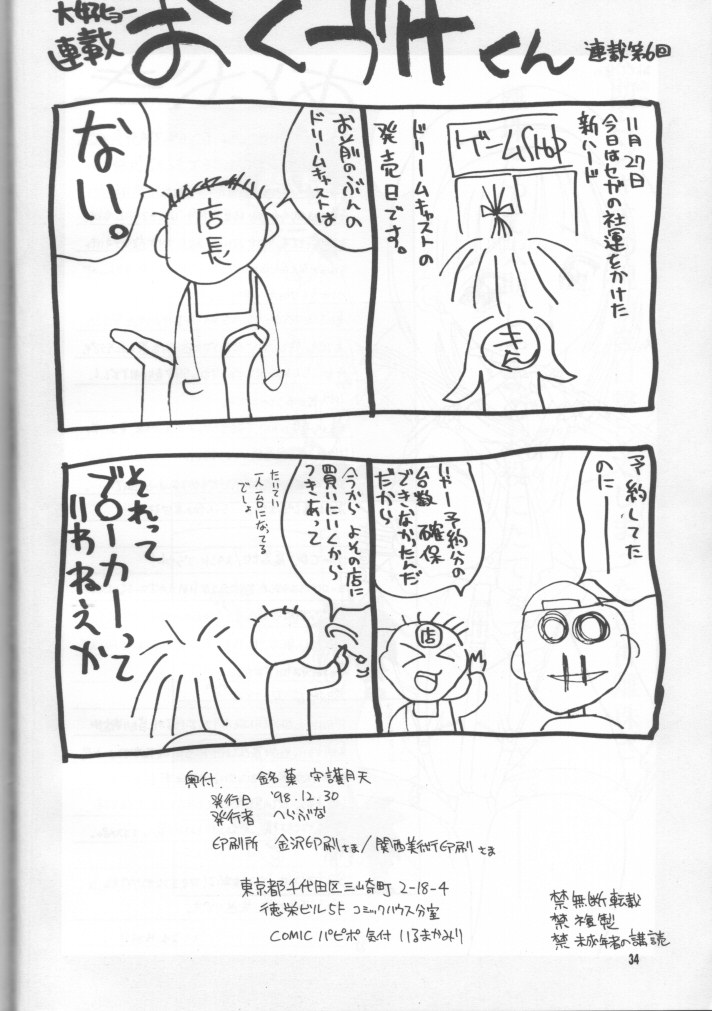 大好ヒョー
連載
おくづけくん
連載第6回
11月27日
今日はセガの社運をかけた
新ハード
ドリームキャストの
発売日です。
ゲームSHOP
きん
お前のぶんの
ドリームキャストは
ない。
店長
予約してた
のにーーー
いやー予約分の
台数確保
できなかったんだ
だから
店
今から よその店に
買いにいくから
つきあって
たいてい
一人一台になってる
でしょ
それって
ブローカーって
いわねえか
奥付. 銘菓 守護月天
発行日 '98.12.30
発行者 へらぶな
印刷所 金沢印刷さま/関西美術印刷さま
東京都千代田区三崎町 2-18-4
徳栄ビル5F コミックハウス分室
COMIC パピポ 気付 いるまかみり
禁無断転載
禁複製
禁未成年者の講読
34